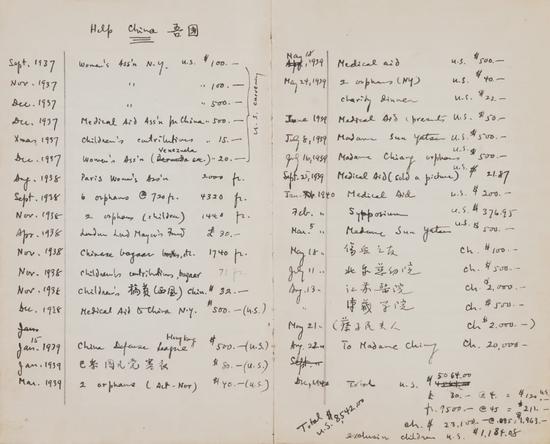 Help China 吾國
Sept. 1937 Women's Ass'n N.Y. U.S. $100.—
Nov. 1937 " " 100.—
Dec. 1937 " " 500.—
Dec. 1937 Medical Aid Ass'n for China " 500.—
Xmas 1937 Children's contributions " 15.—
Dec. 1937 Women's Ass'n ( Venezuela ) - 20.—
U.S. currency
Aug. 1938 Paris Women's Ass'n 2000 fr.
Sept. 1938 6 orphans @ 720 fr. 4320 fr.
Nov. 1938 2 orphans (children) 1440 fr.
Apr. 1938 London Lord Mayor's Fund £ 30.—
Nov. 1938 Chinese bazaar 1740 fr.
Nov. 1938 children's contributions, bazaar fr.
Nov. 1938 Children's (西風) Chin. $ 32.—
Dec. 1938 Medical Aid to China N.Y. $500.—(U.S.)
Jan. 15 1939 China Defense League Hongkong $500.—(U.S.)
Jan. 1939 巴黎 $80.—(U.S.)
Mar. 1939 2 orphans ( Act.-Nov.) $40.—(U.S.)
May 18 1939 Medical aid U.S. $500.—
May 24, 1939 2 orphans (NY) U.S. $40.—
charity dinner U.S. $22.—
June 1939 Medical Aid (presents) U.S. $50.—
July 8, 1939 Madame Sun Yatsen U.S. $500.—
July 16, 1939 Madame Chiang orphans U.S. $500.—
Sept. 21, 1939 Medical Aid (sold a picture) U.S. $21.87
1940 Medical Aid U.S. $200.—
Feb. " Symposium U.S. $376.95
Mar. 5 " Madame Sun Yatsen U.S. $500.—
May 18 " 傷兵之友 Ch. $100.—
July 11 " 北泉慈幼院 Ch. $500.—
Aug. 13 " 江蘇醫院 Ch. $2,000.—
" 學院 Ch. $500.—
May 21 — (蔡孑民夫人) Ch. $2,000.—
Aug. 22 To Madame Chiang Ch. 20,000.—
Dec. 1940 Total U.S. $ 5064.00
£ 30.— @ 4. = $120.
fr. 9500.— @ 45 = $211.—
ch. $ 25,100.— 1,963.—
exclusive children U.S. $1,184.05
Total $
U.S. 8,542.00